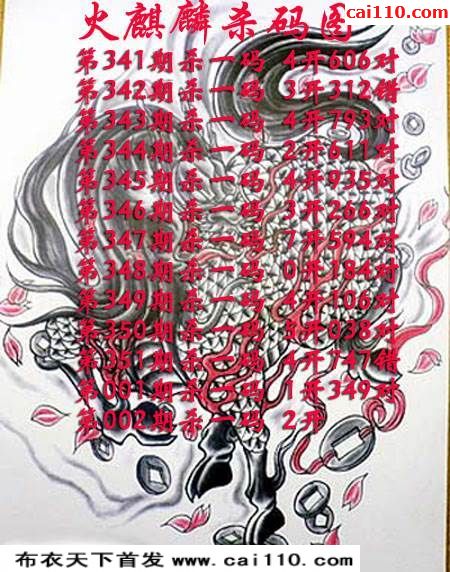 cai110.com
火麒麟杀码图
第341期杀一码 4开606对
第342期杀一码 3开312错
第343期杀一码 4开793对
第344期杀一码 2开611对
第345期杀一码 4开935对
第346期杀一码 3开266对
第347期杀一码 7开594对
第348期杀一码 0开184对
第349期杀一码 4开106对
第350期杀一码 5开038对
第351期杀一码 4开747错
第001期杀一码 1开349对
第002期杀一码 2开
布衣天下首发 www.cai110.com